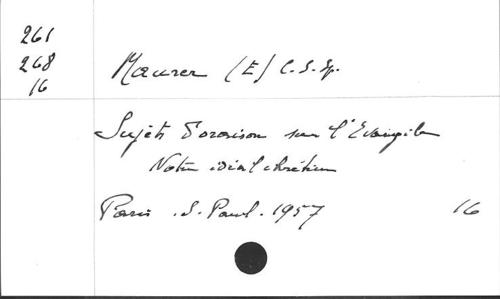 261
268
16
Maurer (E) C.S.Sp.
Sujets d'oraison sur l'Evangile
Notre idéal chrétien
Paris . S. Paul . 1957 16